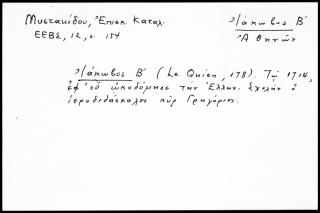 Μυστακίδου, Ἐπισκ. Καταλ.
ΕΕΒΣ, 12, σ 154
Ἰάκωβος Β´
Ἀθηνῶν
Ἰάκωβος Β´ (Le Quien, 178). Τῷ 1714,
ἐφ' οὗ ᾠκοδόμησε τὴν Ἑλλην. Σχολὴν ὁ
ἱεροδιδάσκαλος κὺρ Γρηγόριος.